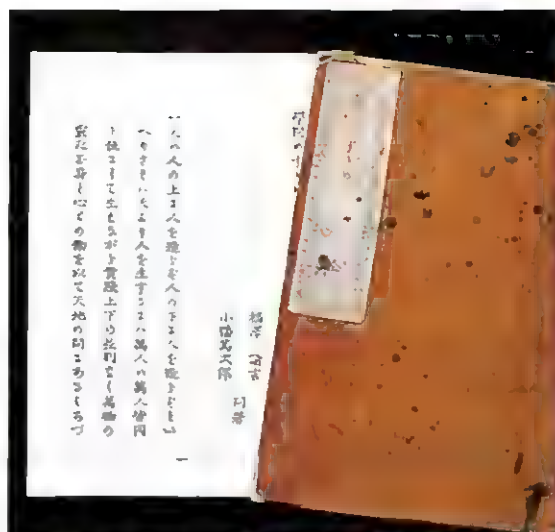 學問のす
福澤 諭吉
小幡篤次郎 同著
天ハ人の上ニ人を造らず人の下ニ人を造らずとい
へりされバ天より人を生ずるニハ萬人ハ萬人皆同
じ位ニして生れながら貴賤上下の差別なく萬物の
靈たる身と心との働を以て天地の間ニあるよろづ
一